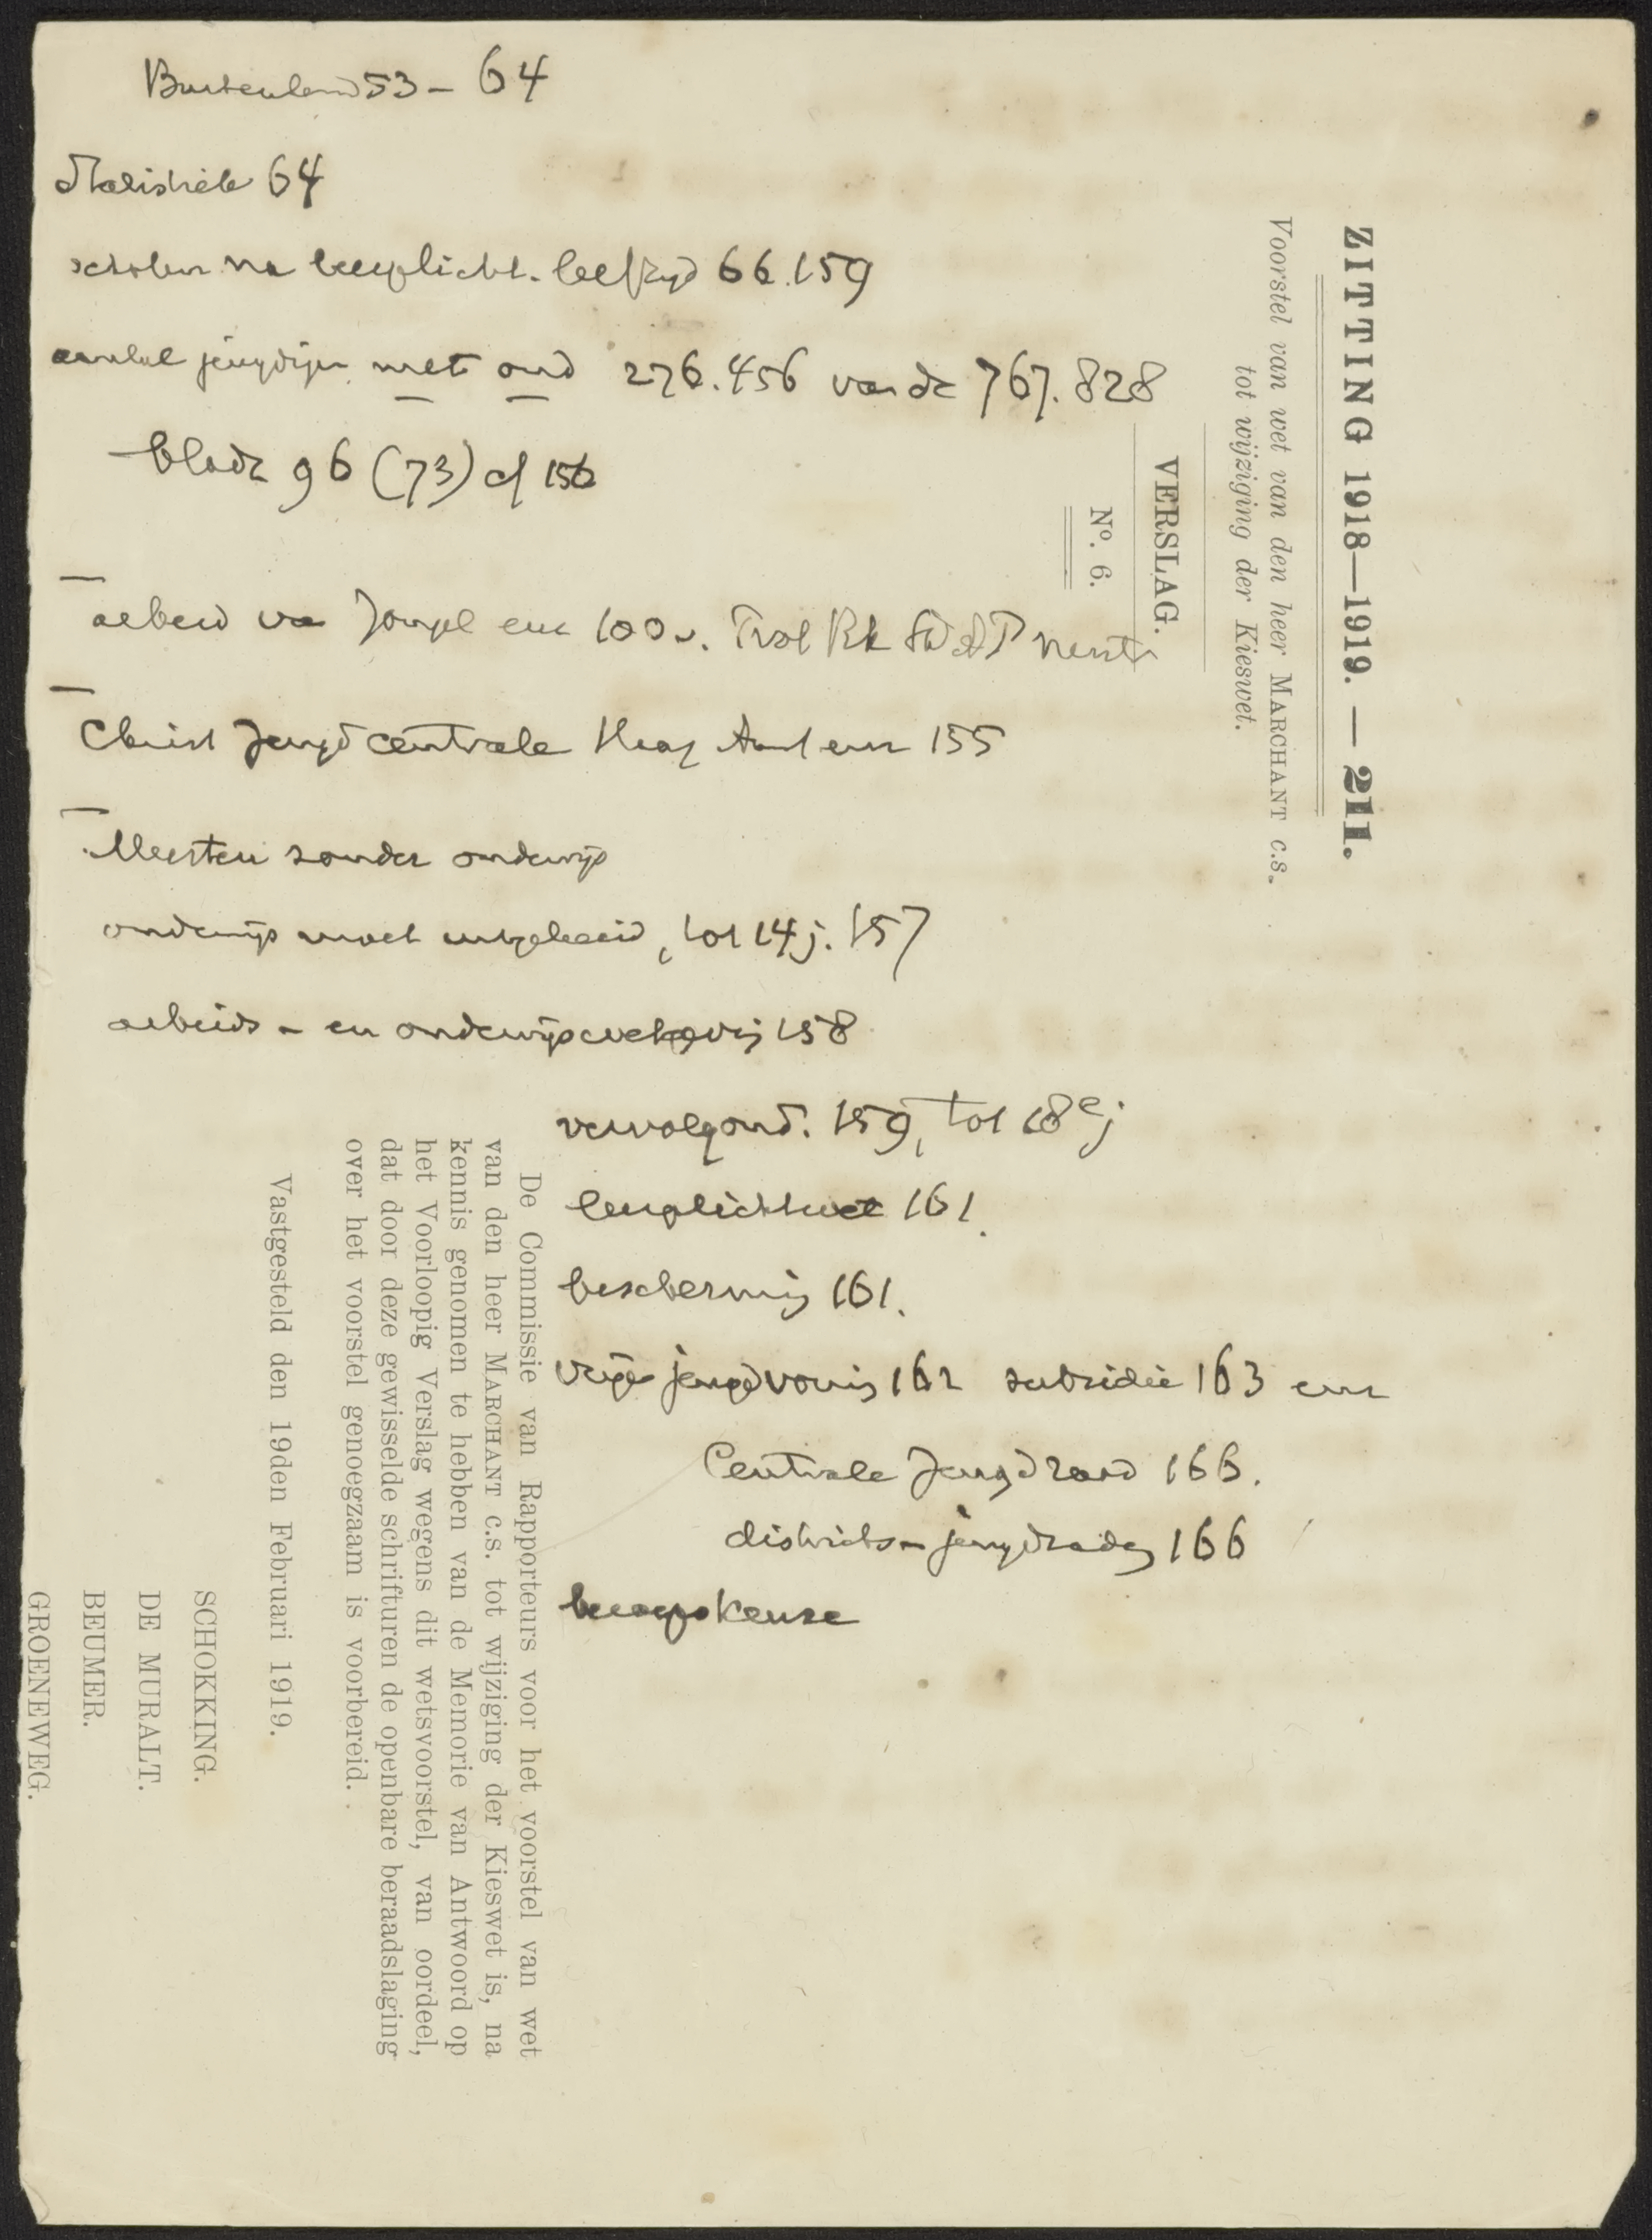 Buitenland 53 - 64
Statistiek 64
scholen na leerplicht. leeftijd 66.159
aantal jeugdigen met ond 276.456 van de 767.828
bladz 96 (73) cf 156
arbeid van Jongel enz 100 v. Prot RK SDAP neutr
Christ Jeugdcentrale Haag Amst enz 155
Meesten zonder onderwijs
onderwijs moet uitgebreid, tot 14 j. 157
arbeids- en onderwijswetgeving 158
vervolgond. 159, tot 18e j
leerplichtwet 161.
bescherming 161.
vrije jeugdvorming 162 subsidie 163 enz
Centrale Jeugdraad 166.
districts-jeugdraden 166
beroepskeuze
ZITTING 1918—1919. — 211.
Voorstel van wet van den heer MARCHANT c.s.
tot wijziging der Kieswet.
VERSLAG.
N°. 6.
De Commissie van Rapporteurs voor het voorstel van wet
van den heer MARCHANT c.s. tot wijziging der Kieswet is, na
kennis genomen te hebben van de Memorie van Antwoord op
het Voorloopig Verslag wegens dit wetsvoorstel, van oordeel,
dat door deze gewisselde schrifturen de openbare beraadslaging
over het voorstel genoegzaam is voorbereid.
Vastgesteld den 19den Februari 1919.
SCHOKKING.
DE MURALT.
BEUMER.
GROENEWEG.